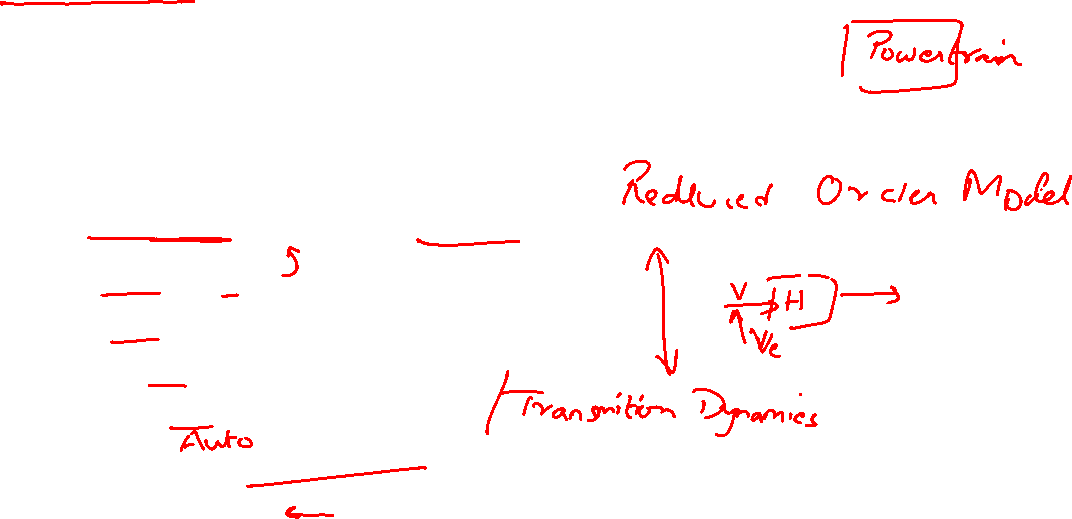 Powertrain
Reduced Order Model
V H
Ve
Transmition Dynamics
Auto